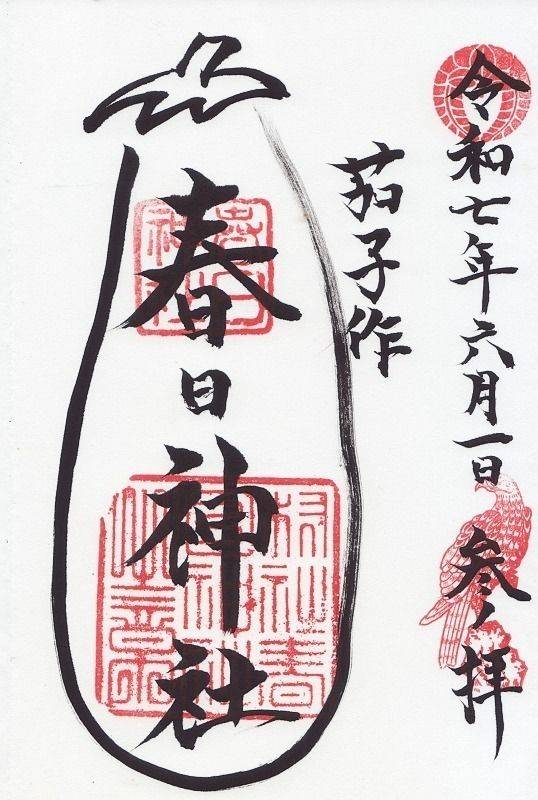 令和七年六月一日 参拝
茄子作
春日神社